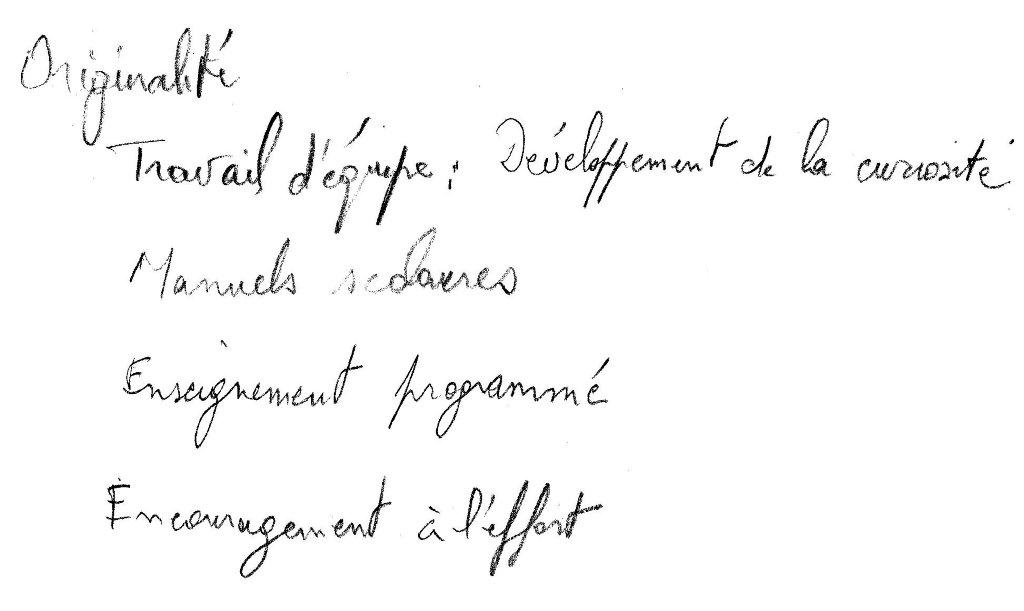 Originalité
Travail d'équipe : Développement de la curiosité
Manuels scolaires
Enseignement programmé
Encouragement à l'effort